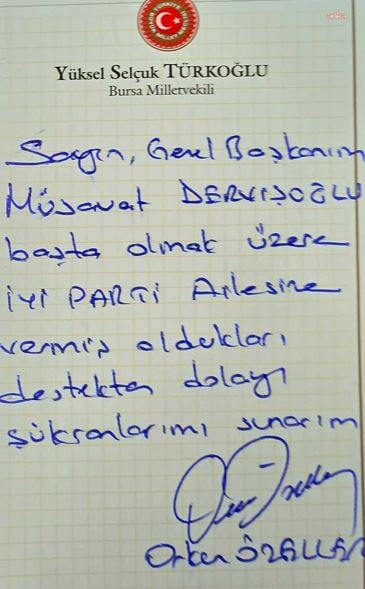 anka
Yüksel Selçuk TÜRKOĞLU
Bursa Milletvekili
Sayın, Genel Başkanım
Müsavat DERVİŞOĞLU
başta olmak üzere
İYİ PARTİ Ailesine
vermiş oldukları
destekten dolayı
şükranlarımı sunarım
Orkun ÖZALLAR